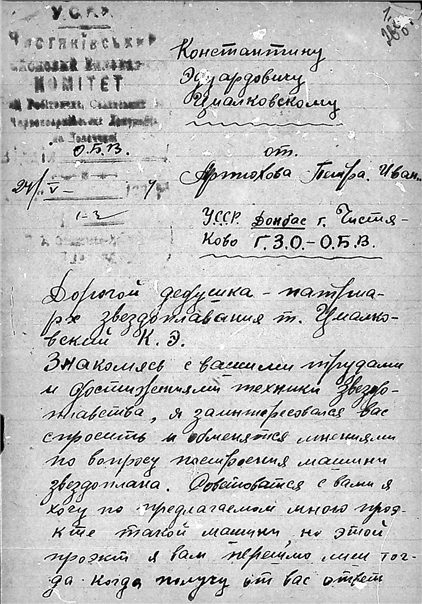 У.С.Р.
Чистяківськ
КОМІТЕТ
О.Б.В.
24/V
1-3
Константину
Эдуардовичу
Циалковскому
от
Артюхова Петра Иван.
УССР Донбас г. Чистя-
ково Г.З.О.-О.Б.В.
Дорогой дедушка - патриа-
рх звездоплавания т. Циалко-
вский К.Э.
Знакомясь с вашими трудами
и достижениями техники Звездо-
плавства, я заинтересовался вас
спросить и обменятся мнениями
по вопросу построения машини
звездоплана. Советоватся с вами я
хочу по предлагаемом мною прое-
кте такой машини, но этой
проэкт я вам перешлю лиш тог-
да когда получу от вас ответ